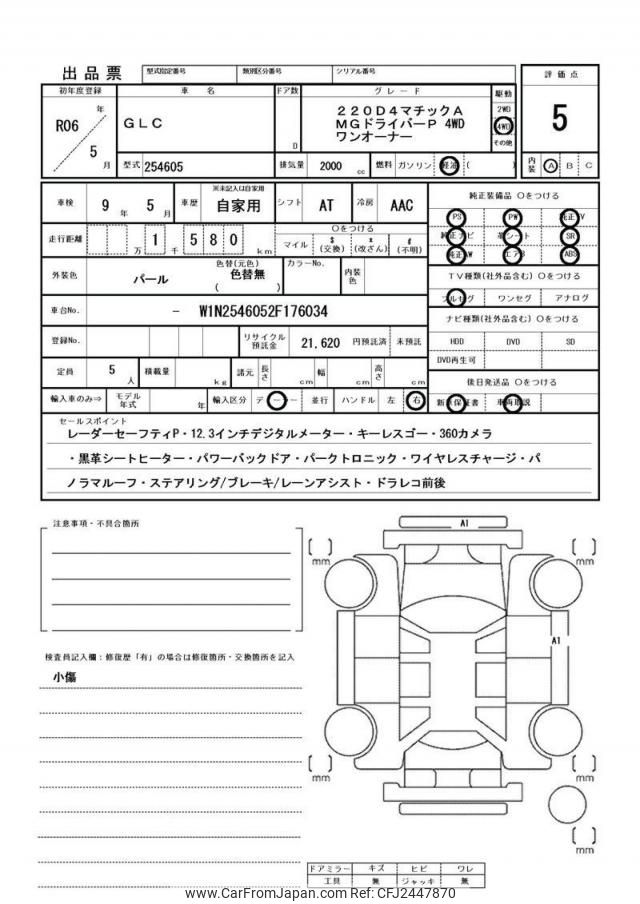 出品票 型式指定番号 類別区分番号 シリアル番号
評価点
初年度登録 車名 ドア数 グレード 駆動
R06 年 5 月
GLC
D
220D4マチックA
MGドライバーP 4WD
ワンオーナー
2WD
4WD
その他
5
型式 254605 排気量 2000 cc 燃料 ガソリン 軽油 ( )
内装 A B C
車検 9 年 5 月 車歴 ※未記入は自家用 自家用 シフト AT 冷房 AAC
純正装備品 〇をつける
PS PW 純正TV
純正ナビ 革シート SR
純正AW エアB ABS
走行距離 万 1 千 5 8 0 km
〇をつける
マイル $ (交換) * (改ざん) # (不明)
TV種類(社外品含む) 〇をつける
フルセグ ワンセグ アナログ
外装色 パール 色替(元色) 色替無 ( ) カラーNo. 内装色
車台No. - W1N2546052F176034
ナビ種類(社外品含む) 〇をつける
HDD DVD SD
DVD再生可
登録No. リサイクル預託金 21,620 円預託済 未預託
定員 5 人 積載量 kg 諸元 長さ cm 幅 cm 高さ cm
後日発送品 〇をつける
新車保証書 車両取説
輸入車のみ⇒ モデル年式 年 輸入区分 ディーラー 並行 ハンドル 左 右
セールスポイント
レーダーセーフティP・12.3インチデジタルメーター・キーレスゴー・360カメラ
・黒革シートヒーター・パワーバックドア・パークトロニック・ワイヤレスチャージ・パ
ノラマルーフ・ステアリング/ブレーキ/レーンアシスト・ドラレコ前後
注意事項・不具合箇所
A1
[ ] mm
[ ] mm
A1
検査員記入欄：修復歴「有」の場合は修復箇所・交換箇所を記入
小傷
[ ] mm
[ ] mm
[ ] mm
ドアミラー キズ ヒビ ワレ
工具 無 ジャッキ 無
www.CarFromJapan.com Ref: CFJ2447870